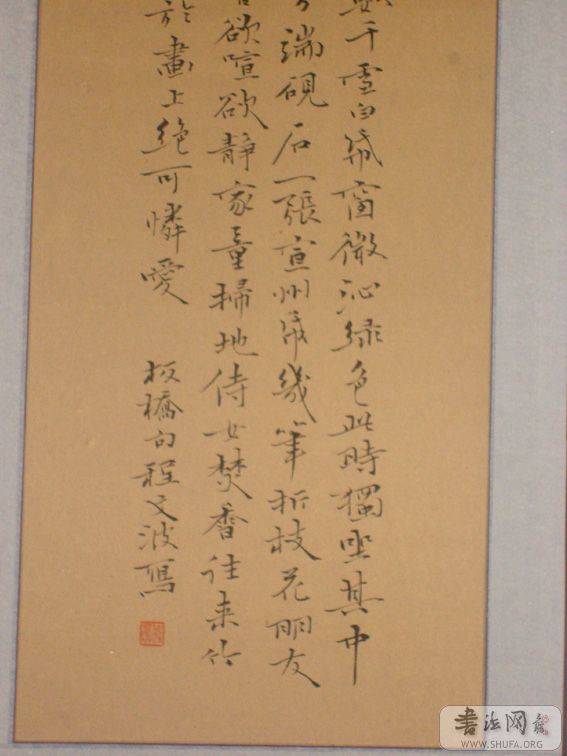 數干雪白帋窗微沁绿色此時獨坐其中
方端硯石一張宣州帋幾筆折枝花朋友
欲喧欲静家童掃地侍女焚香往来竹
於畫上絕可憐愛 板橋句程文波寫
書法网
WWW.SHUFA.ORG